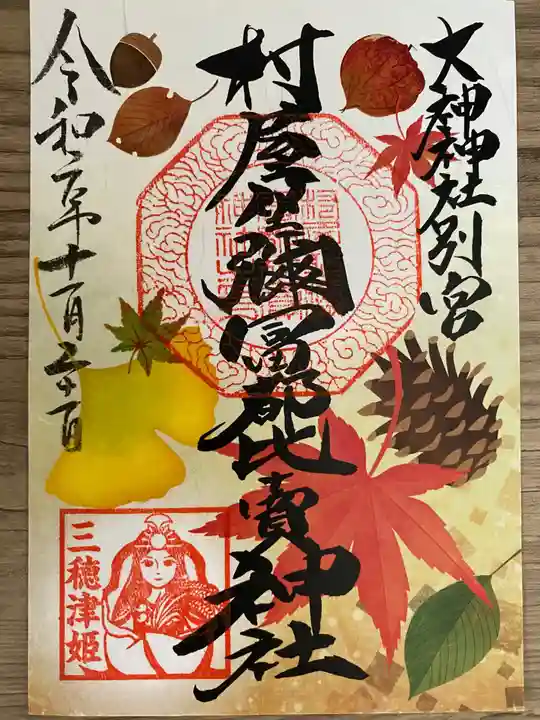 大神神社別宮
村屋坐彌冨都比賣神社
令和元年十一月三十日
三穂津姫